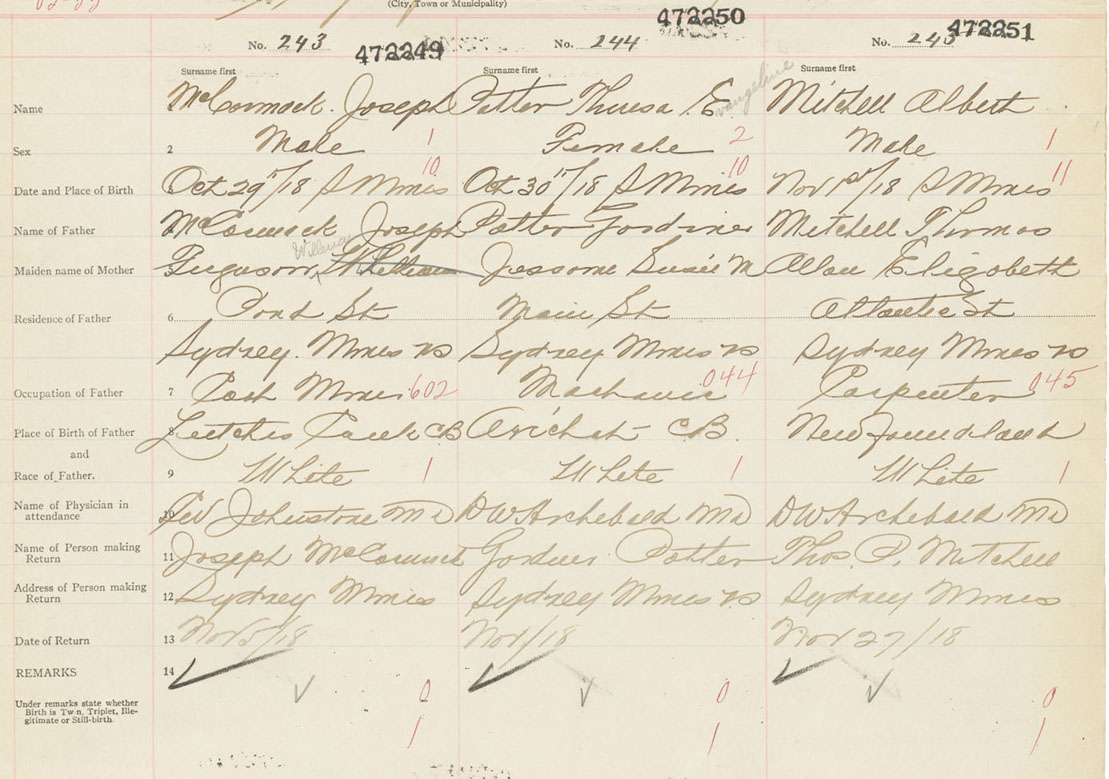 (City, Town or Municipality)
472250
472251
No. 243 472249 No. 244 No. 245
Surname first Surname first Surname first
Name McCormack Joseph Potter Theresa E vangeline Mitchell Albert
Sex 2 Male 1 Female 2 Male 1
10 10 11
Date and Place of Birth Oct 29"/18 S Mines Oct 30"/18 S Mines Nov 1st/18 S Mines
Name of Father McCormack Joseph Potter Gordiner Mitchell Thomas
Maiden name of Mother Ferguson Jessome Susie M Allan Elizabeth
Residence of Father 6 Pond St Main St Atlantic St
Sydney Mines NS Sydney Mines NS Sydney Mines NS
Occupation of Father 7 Mines 602 Machanic 044 Carpenter 045
Place of Birth of Father 8 Leitches CB Arichat CB Newfoundland
and
Race of Father. 9 White 1 White 1 White 1
Name of Physician in
attendance 10 Johnstone MD DW Archebald MD DW Archebald MD
Name of Person making
Return 11 Joseph McCormack Potter Thos. P. Mitchell
Address of Person making
Return 12 Sydney Mines Sydney Mines NS Sydney Mines
Date of Return 13 Nov 5/18 Nov 1/18 Nov 27/18
REMARKS 14
0 0 0
Under remarks state whether
Birth is Twin, Triplet, Ille-
gitimate or Still-birth.
1 1 1